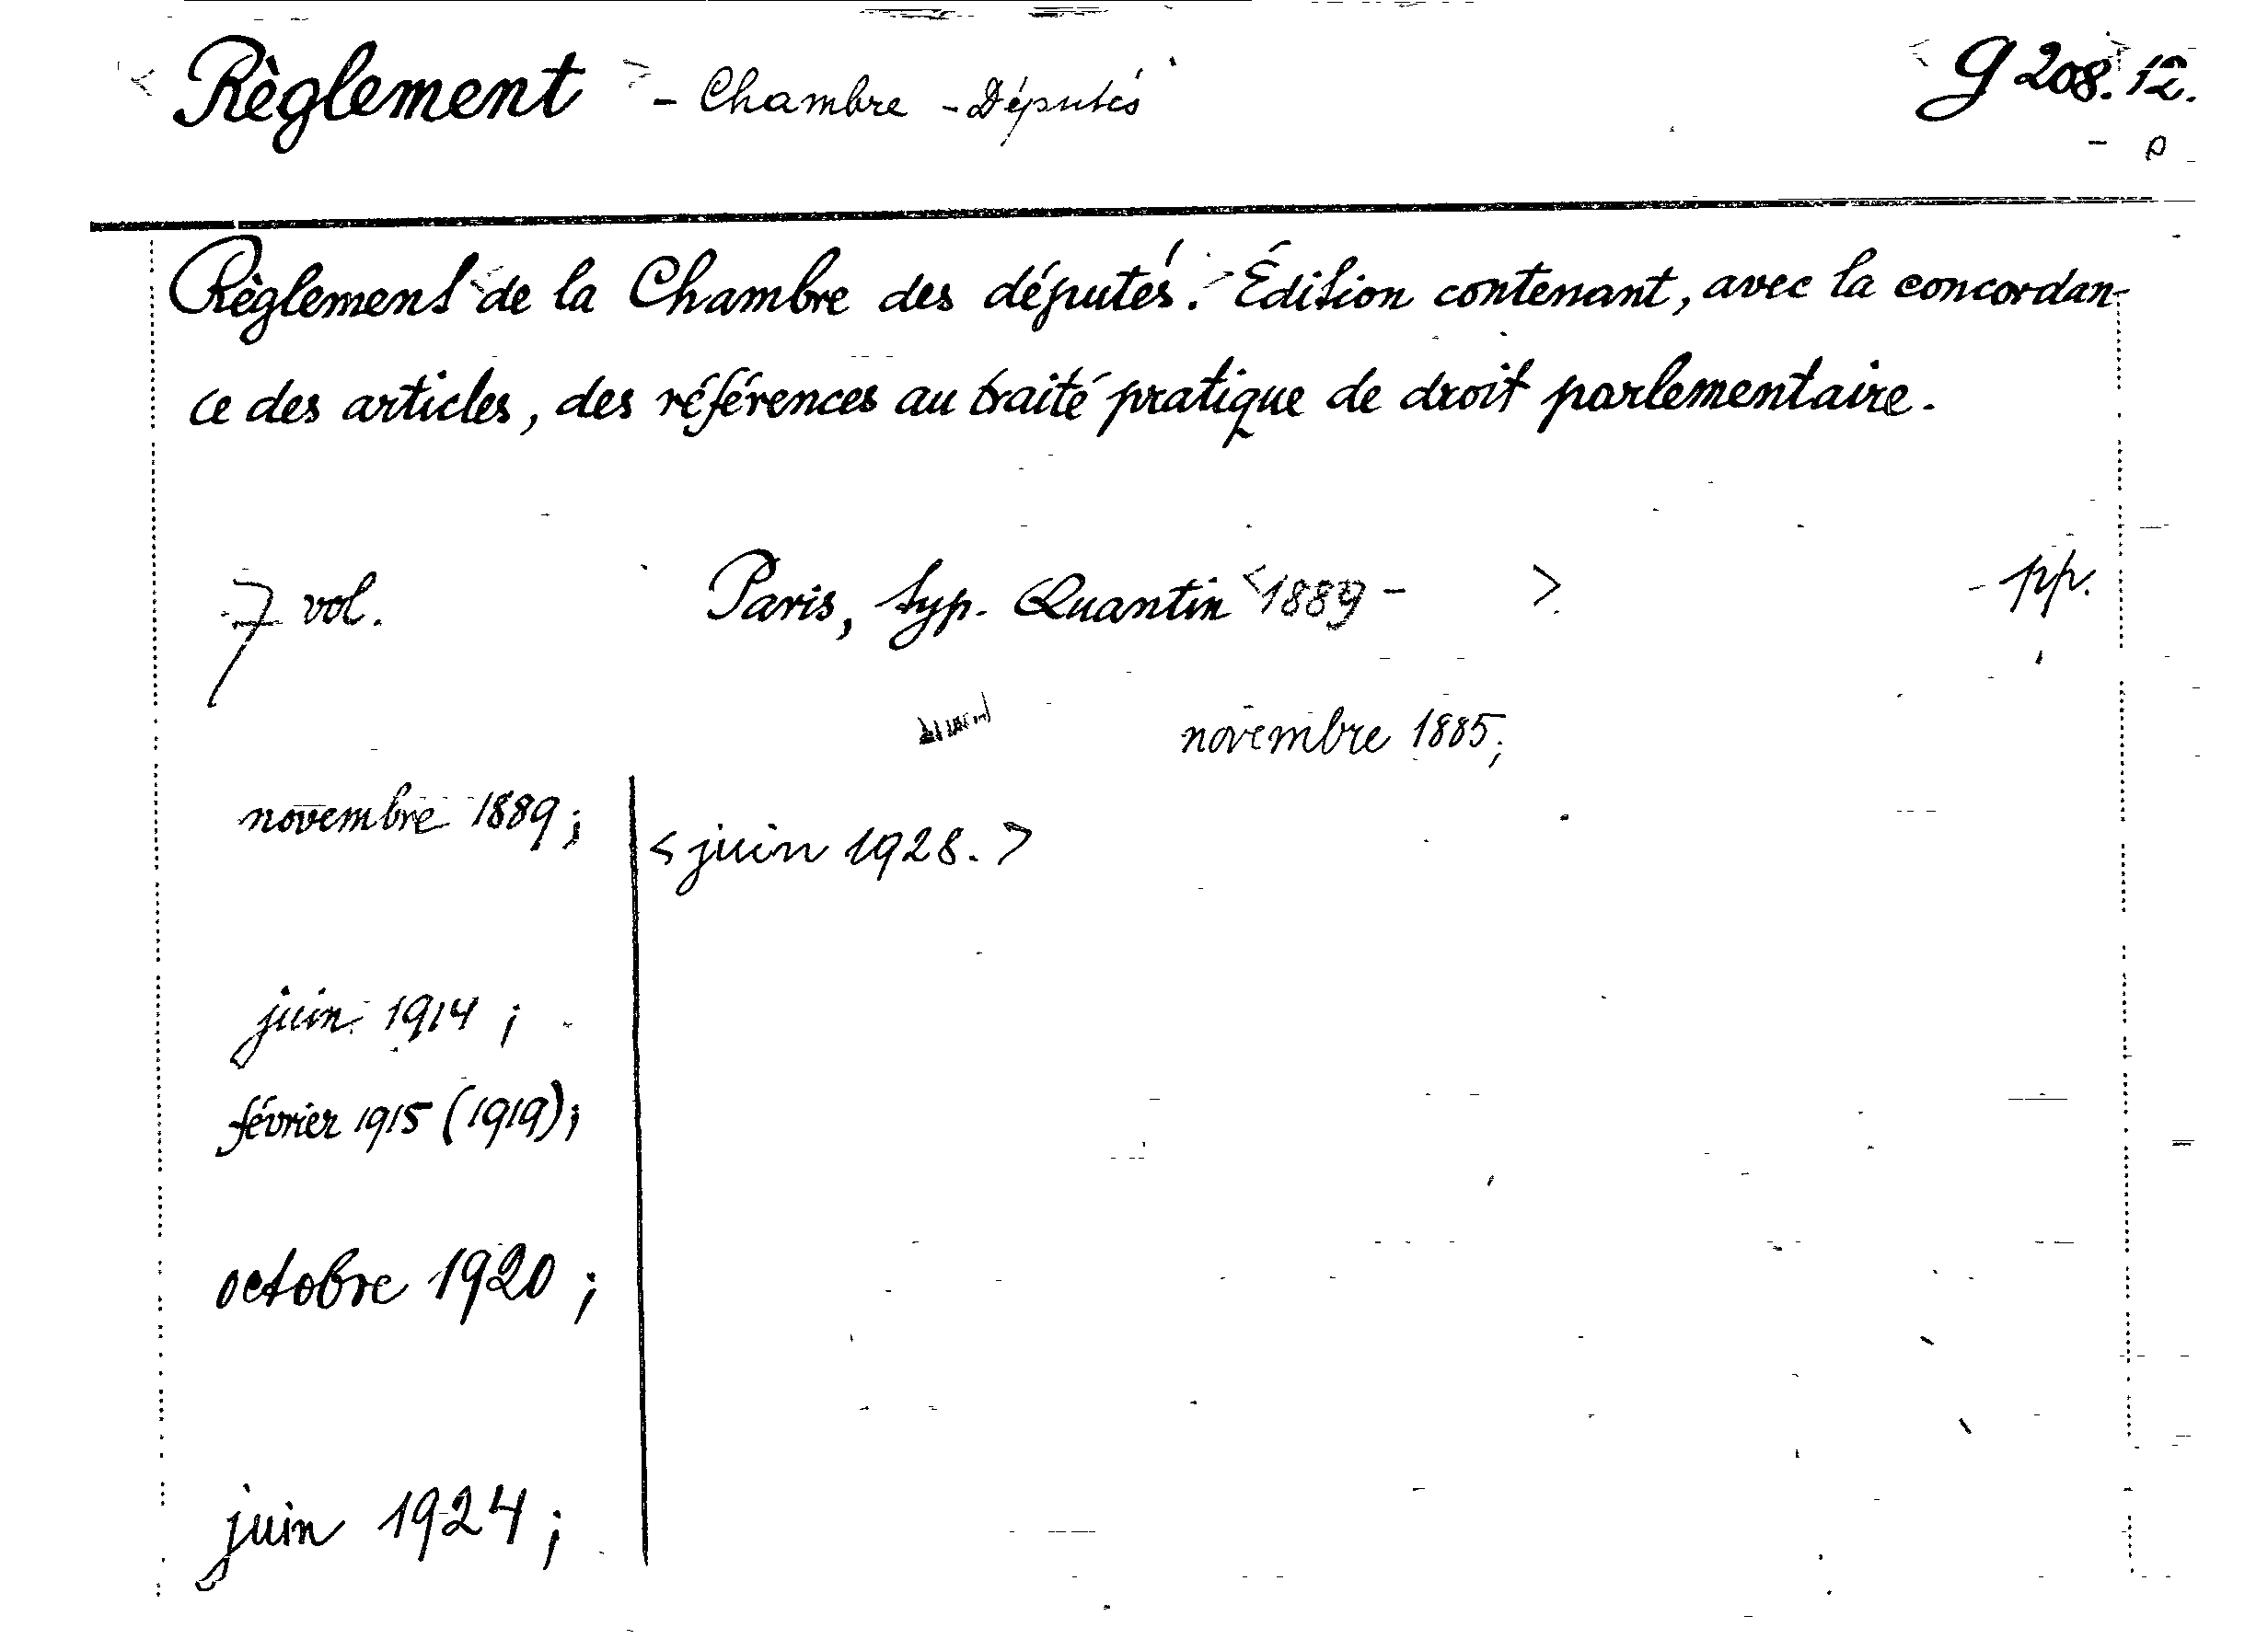 < Règlement > - Chambre - Députés < g 208.> 12.
- p
Règlement < de la Chambre des députés. > Édition contenant, avec la concordan-
ce des articles, des références au traité pratique de droit parlementaire.
7 vol. Paris, typ. Quantin < 1889 - > - pp.
novembre 1885;
novembre 1889;
< juin 1928. >
juin 1914 ;
février 1915 (1919);
octobre 1920 ;
juin 1924 ;